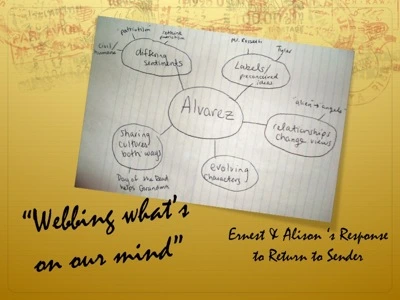 patriotism
civil/
differing
sentiments
Mr. Rossetti
Tyler
Labels/
preconceived
ideas
Alvarez
alien → angels
relationships
change views
sharing
cultures
both ways
evolving
characters
Day of the Dead
helps Grandma
"Webbing what's
on our mind"
Ernest & Alison 's Response
to Return to Sender